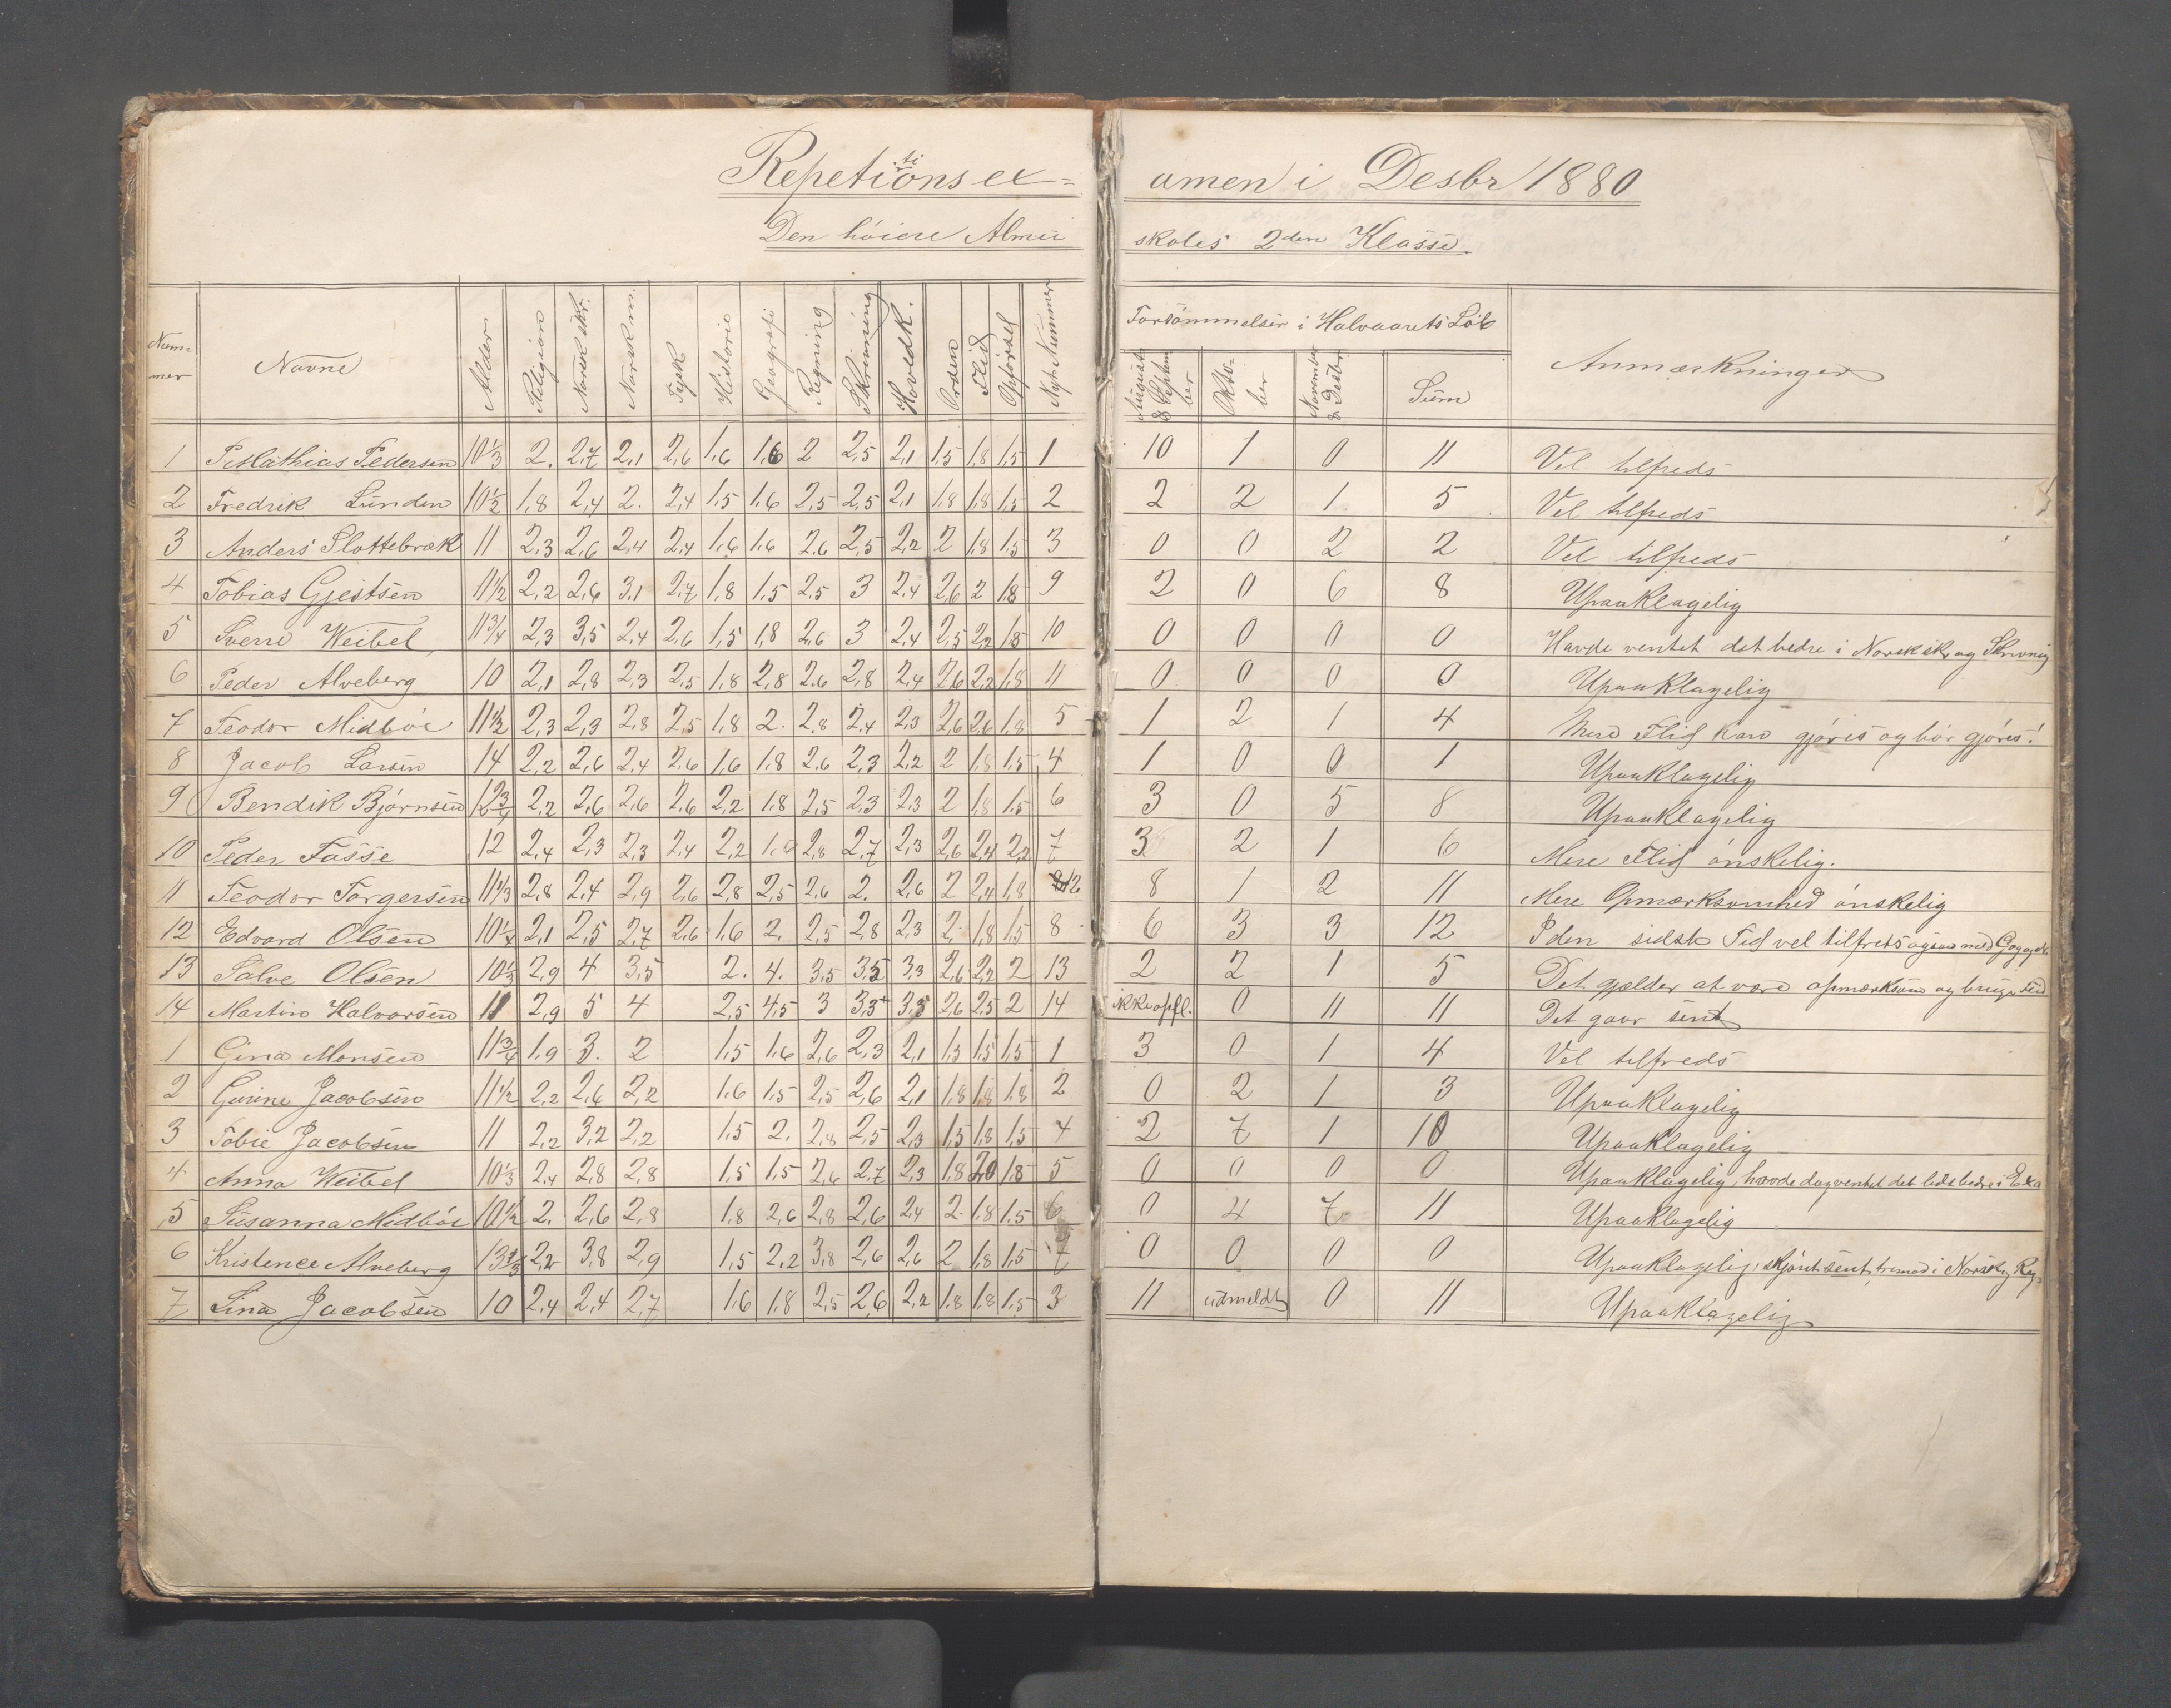 Repetitionsex=amen i Desbr 1880
Den høiere Almueskoles 2den Klasse.
Num=mer Navne Alder Religion Norsk skr. Norsk m. Tysk Historie Geografi Regning Skrivning Hovedk. Orden Flid Opførsel Nyt Nummer Forsømmelser i Halvaarets Løb Anmærkninger
August & September Oktober November & Desbr Sum
1 P. Mathias Pedersen 10 1/3 2. 2,7 2,1 2,6 1,6 1,6 2 2,5 2,1 1,5 1,8 1,5 1 10 1 0 11 Vel tilfreds
2 Fredrik Lunden 10 1/2 1,8 2,4 2. 2,4 1,5 1,6 2,5 2,5 2,1 1,8 1,8 1,5 2 2 2 1 5 Vel tilfreds
3 Anders Slottebræk 11 2,3 2,6 2,4 2,4 1,6 1,6 2,6 2,5 2,2 2 1,8 1,5 3 0 0 2 2 Vel tilfreds
4 Tobias Gjestsen 11 1/2 2,2 2,6 3,1 2,7 1,8 1,5 2,5 3 2,4 2,6 2 1,8 9 2 0 6 8 Upaaklagelig
5 Sverre Weibel 11 3/4 2,3 3,5 2,4 2,6 1,5 1,8 2,6 3 2,4 2,5 2,2 1,8 10 0 0 0 0 Havde ventet det bedre i Norsk sk. og Skrivnig
6 Peder Alveberg 10 2,1 2,8 2,3 2,5 1,8 2,8 2,6 2,8 2,4 2,6 2,2 1,8 11 0 0 0 0 Upaaklagelig
7 Teodor Midbøe 11 1/2 2,3 2,3 2,8 2,5 1,8 2. 2,8 2,4 2,3 2,6 2,6 1,8 5 1 2 1 4 Mere Flid kan gjøres og bør gjøres!
8 Jacob Larsen 14 2,2 2,6 2,4 2,6 1,6 1,8 2,6 2,3 2,2 2 1,8 1,5 4 1 0 0 1 Upaaklagelig
9 Bendik Bjørnsen 12 3/4 2,2 2,6 2,6 2,6 2,2 1,8 2,5 2,3 2,3 2 1,8 1,5 6 3 0 5 8 Upaaklagelig
10 Peder Fasse 12 2,4 2,3 2,3 2,4 2,2 2,8 2,7 2,3 2,6 2,4 2,2 7 3 2 1 6 Mere Flid ønskelig.
11 Teodor Torgersen 11 1/3 2,8 2,4 2,9 2,6 2,8 2,5 2,6 2. 2,6 2 2,4 1,8 12 8 1 2 11 Mere Opmærksomhed ønskelig
12 Edvard Olsen 10 1/4 2,1 2,5 2,7 2,6 1,6 2. 2,5 2,8 2,3 2. 1,8 1,5 8 6 3 3 12 I den sidste Tid vel tilfreds ogsaa med
13 Salve Olsen 10 1/3 2,9 4 3,5 2. 4. 3,5 3,5 3,3 2,6 2,2 2 13 2 2 1 5 Det gjælder at være opmærksom og bruge Tid
14 Martin Halvorsen 11 2,9 5 4 2,5 4,5 3 3,3+ 3,5 2,6 2,5 2 14 ikke opfl. 0 11 11 Det gaar sent
1 Gina Monsen 11 3/4 1,9 3. 2 1,5 1,6 2,6 2,3 2,1 1,5 1,5 1,5 1 3 0 1 4 Vel tilfreds
2 Gurine Jacobsen 11 1/2 2,2 2,6 2,2 1,6 1,5 2,5 2,6 2,1 1,8 1,8 1,8 2 0 2 1 3 Upaaklagelig
3 Tobie Jacobsen 11 2,2 3,2 2,2 1,5 2. 2,8 2,5 2,3 1,5 1,8 1,5 4 2 7 1 10 Upaaklagelig
4 Anna Weibel 10 1/3 2,4 2,8 2,8 1,5 1,5 2,6 2,7 2,3 1,8 20 1,8 5 0 0 0 0 Upaaklagelig, havde dog ventet det lidt bedre i Exa
5 Susanna Midbøe 10 1/2 2. 2,6 2,8 1,8 2,6 2,8 2,6 2,4 2. 1,8 1,5 6 0 4 7 11 Upaaklagelig
6 Kristence Alveberg 13 2/3 2,2 3,8 2,9 1,5 2,2 3,8 2,6 2,6 2 1,8 1,5 7 0 0 0 0 Upaaklagelig, skjønt sent fremad i Norsk og Reg.
7 Lina Jacobsen 10 2,4 2,4 2,7 1,6 1,8 2,5 2,6 2,2 1,8 1,8 1,5 3 11 udmeldt 0 11 Upaaklagelig